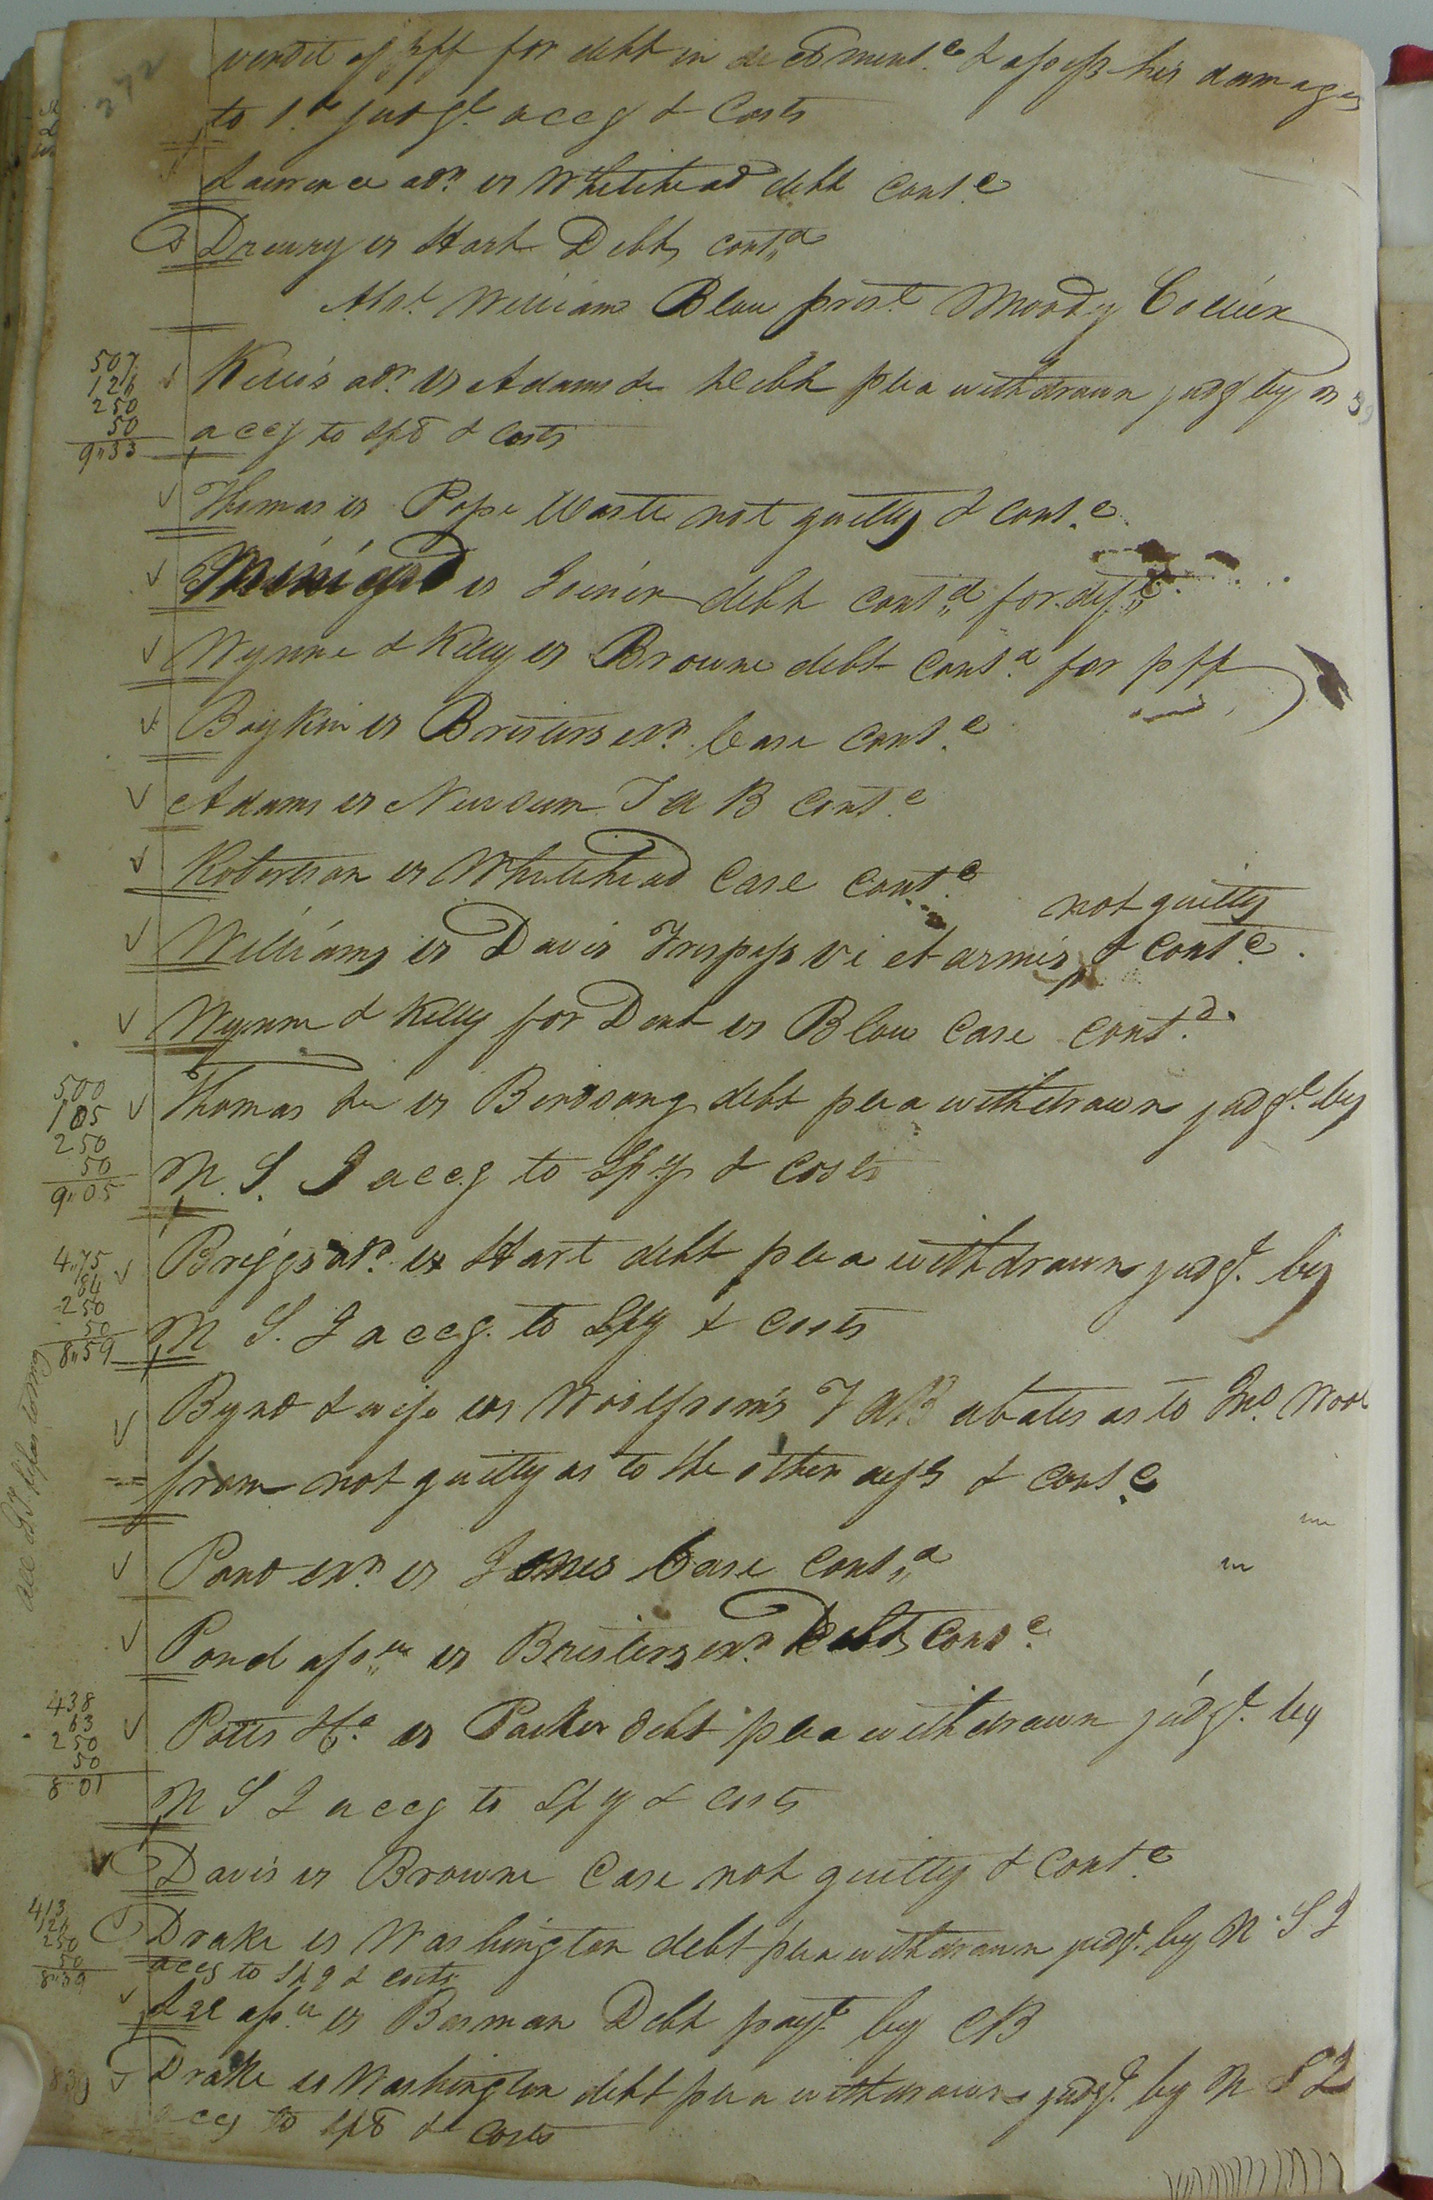 verdit of plff for debt in de ment.d & assess his damages
to 1.d judgt. accg & Costs
Lawrence adr. vs Whitehead debt Cont.d
Drewry vs Hart Debt, Cont.d
Abst. William Blow prest. Moody Collier
507 Kello's adr. vs Adams &c debt plea withdrawn judgt by
126
250
50 accg to Spy & Costs
9"33
Thomas vs Pope Waste not guilty & Cont.d
vs Joiner debt Cont.d for deft.
Wynne & Kelly vs Browne debt Cont.d for plff
Boykin vs Bristers exr. Case Cont.d
Adams vs Newsum T A B Cont.d
Robertson vs Whitehead Case Cont.d
not guilty
Williams vs Davis Trespass vi et armis, & Cont.d
Wynne & Kelly for Dent vs Blow Case Cont.d
500 Thomas &c vs Birdsong debt plea withdrawn judgt. by
105
250
50 N. S. J accg to Spy & Costs
9"05
4"75 Briggs adr. vs Hart debt plea withdrawn judgt. by
84
250
50 N S. J accg. to Spy & Costs
8"59
Bynd & wife vs Woolfrom's T A B abates as to Jno. Wool
from not guilty as to the other defts & Cont.d
Pond exr. vs Jones Case Cont.d
Pond assee. vs Bristers exr. Debt, Cont.d
438 Potts &a vs Parker debt plea withdrawn judgt. by
63
250
50
8 01 N S J accg to Spy & Costs
Davis vs Browne Case not guilty & Cont.d
413 Drake vs Washington debt plea withdrawn judgt. by N S J
126
250
50 accg to Spy & Costs
8"39
Lee assee vs Barman Debt payt. by CB
839 Drake vs Washington debt plea withdrawn judgt. by N S J
accg to Spy & Costs